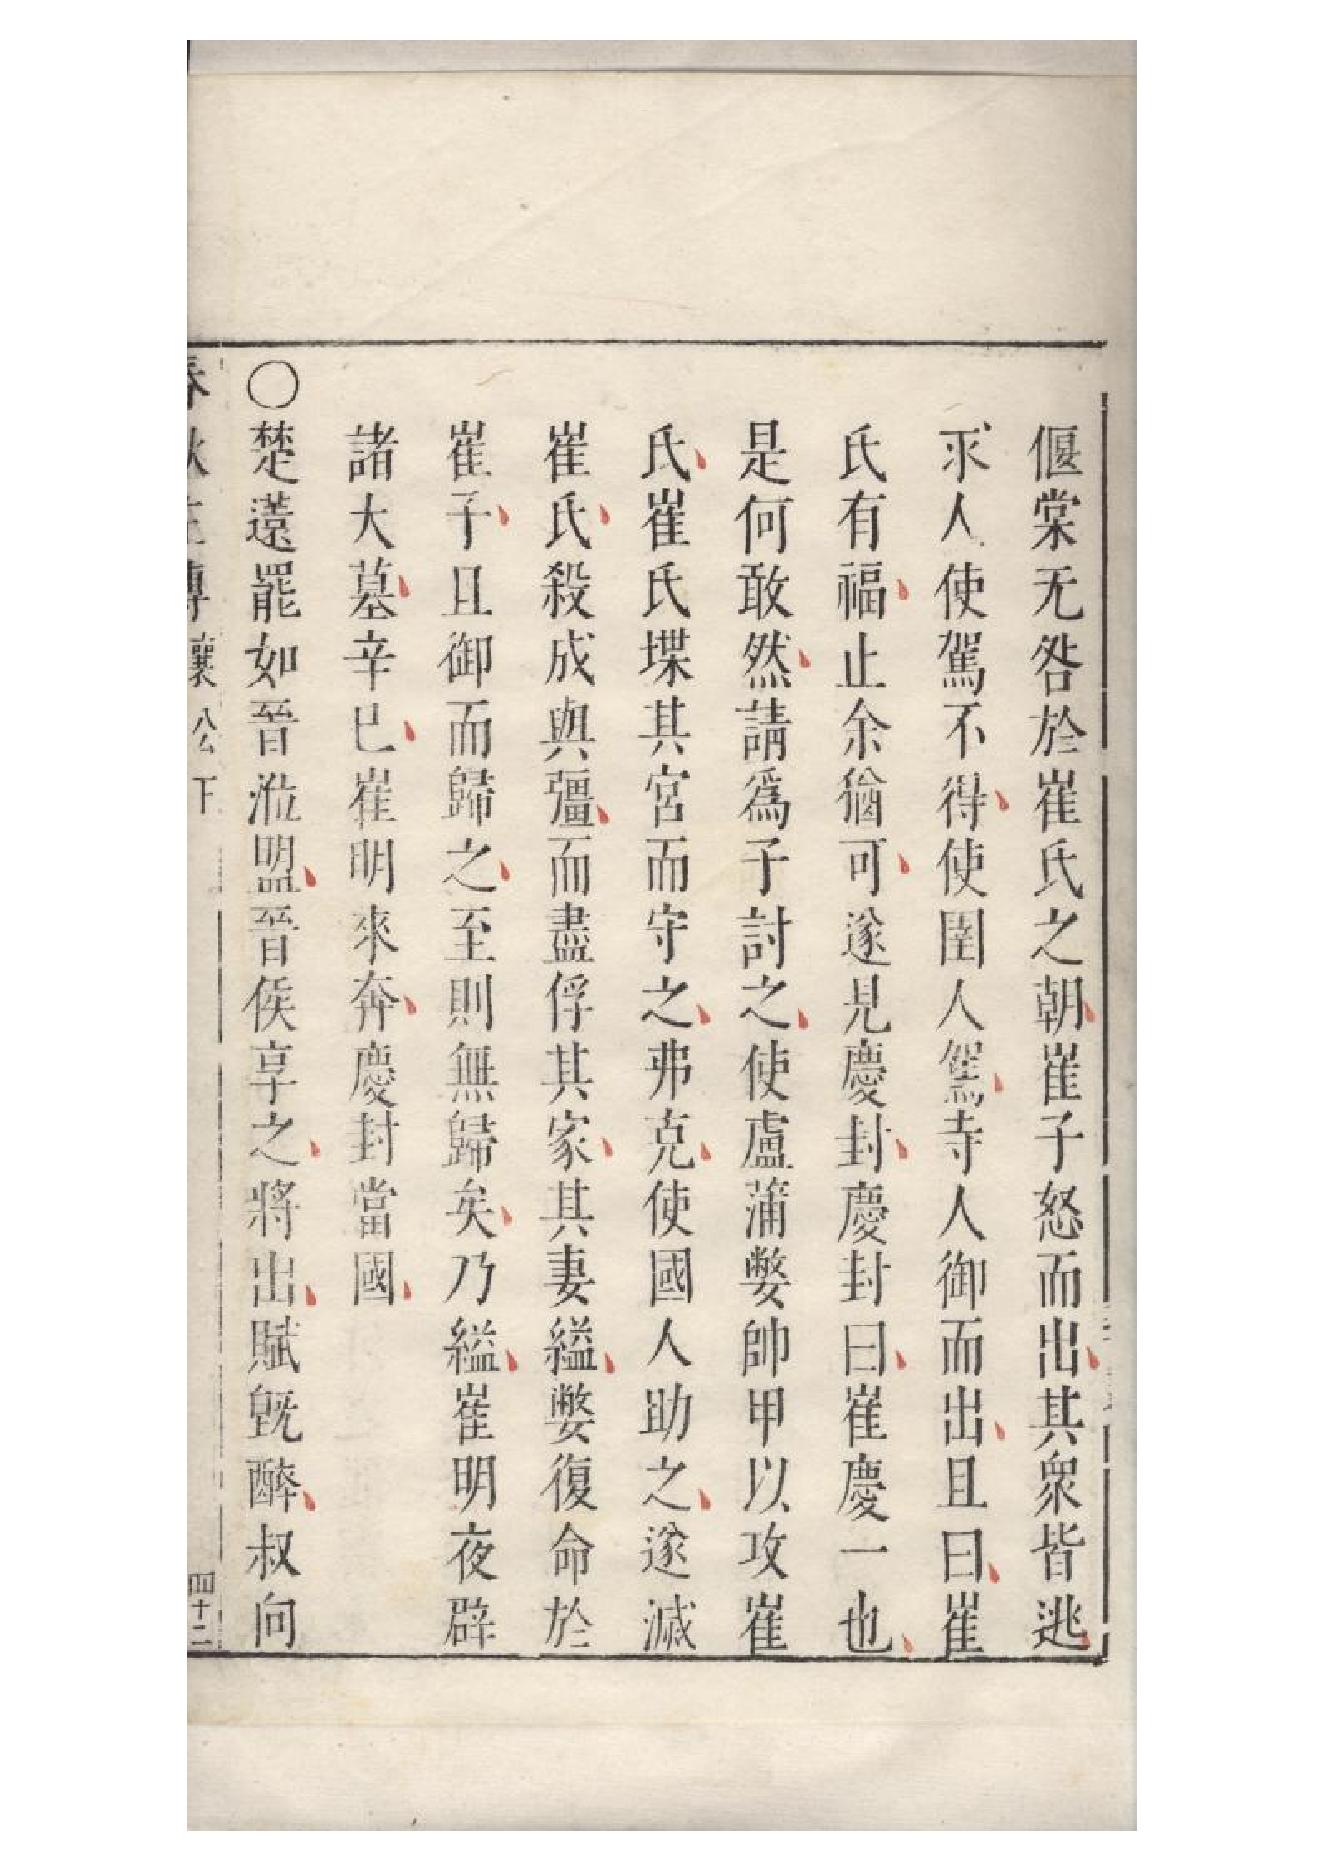 偃棠无咎於崔氏之朝崔子怒而出其衆皆逃
求人使駕不得使圉人駕寺人御而出且曰崔
氏有福止余猶可遂見慶封慶封曰崔慶一也
是何敢然請爲子討之使盧蒲嫳帥甲以攻崔
氏崔氏堞其宮而守之弗克使國人助之遂滅
崔氏殺成與彊而盡俘其家其妻縊嫳復命於
崔子且御而歸之至則無歸矣乃縊崔明夜辟
諸大墓辛巳崔明來奔慶封當國
〇楚薳罷如晉涖盟晉侯享之將出賦旣醉叔向
春秋左傳襄公下
四十二